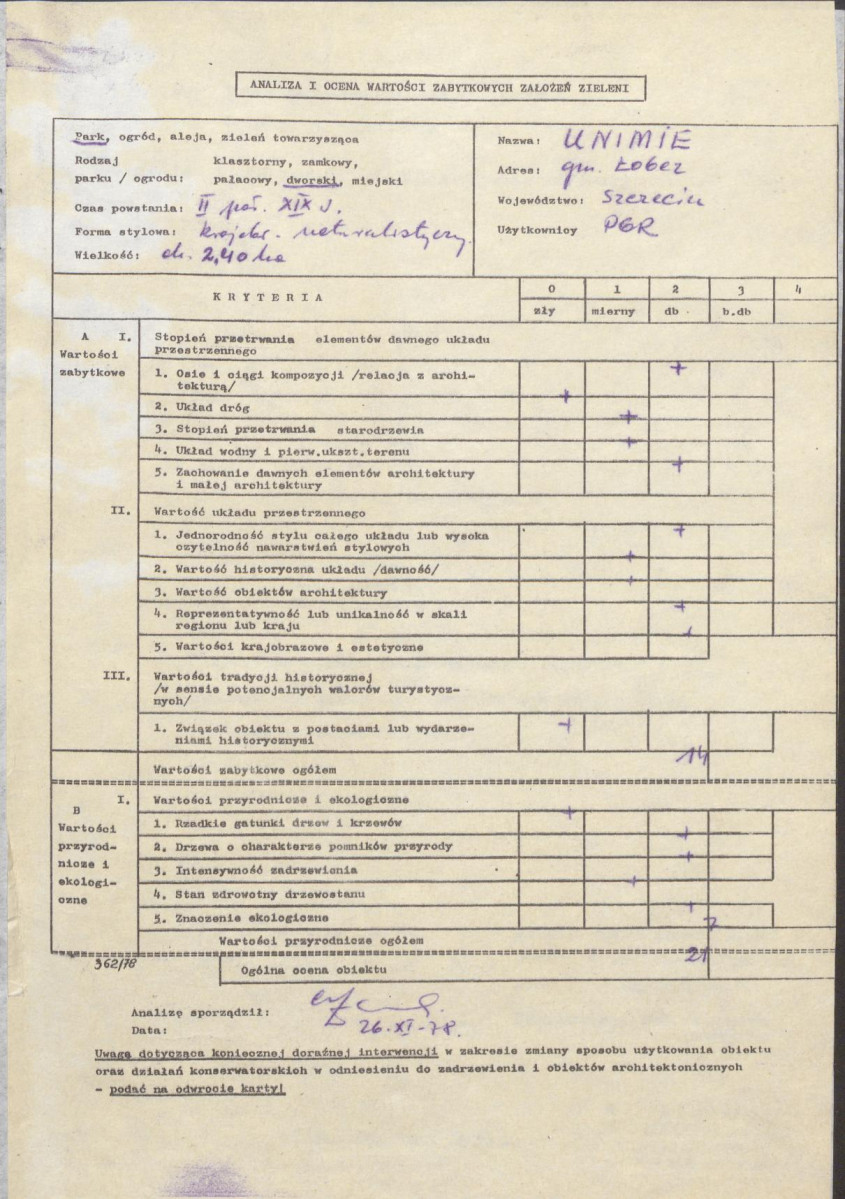 ANALIZA I OCENA WARTOŚCI ZABYTKOWYCH ZAŁOŻEŃ ZIELENI
Park, ogród, aleja, zieleń towarzysząca
Rodzaj klasztorny, zamkowy,
parku / ogrodu: pałacowy, dworski, miejski
Czas powstania: II poł. XIX w.
Forma stylowa: krajobr. naturalistyczny
Wielkość: ok. 2,40 ha
Nazwa: UNIMIE
Adres: gm. Łobez
Województwo: Szczecin
Użytkownicy PGR
KRYTERIA 0 1 2 3 4
zły mierny db b.db
A I. Stopień przetrwania elementów dawnego układu
przestrzennego
Wartości
zabytkowe
1. Osie i ciągi kompozycji /relacja z archi-
tekturą/ +
2. Układ dróg +
3. Stopień przetrwania starodrzewia +
4. Układ wodny i pierw.ukszt.terenu +
5. Zachowanie dawnych elementów architektury
i małej architektury +
II. Wartość układu przestrzennego
1. Jednorodność stylu całego układu lub wysoka
czytelność nawarstwień stylowych +
2. Wartość historyczna układu /dawność/ +
3. Wartość obiektów architektury +
4. Reprezentatywność lub unikalność w skali
regionu lub kraju +
5. Wartości krajobrazowe i estetyczne +
III. Wartości tradycji historycznej
/w sensie potencjalnych walorów turystycz-
nych/
1. Związek obiektu z postaciami lub wydarze-
niami historycznymi +
Wartości zabytkowe ogółem 14
B I. Wartości przyrodnicze i ekologiczne
Wartości
przyrod-
nicze i
ekologi-
czne
1. Rzadkie gatunki drzew i krzewów +
2. Drzewa o charakterze pomników przyrody +
3. Intensywność zadrzewienia +
4. Stan zdrowotny drzewostanu +
5. Znaczenie ekologiczne +
Wartości przyrodnicze ogółem 7
362/78 Ogólna ocena obiektu 21
Analizę sporządził:
Data: 26.XI-78.
Uwaga dotycząca koniecznej doraźnej interwencji w zakresie zmiany sposobu użytkowania obiektu
oraz działań konserwatorskich w odniesieniu do zadrzewienia i obiektów architektonicznych
- podać na odwrocie karty!